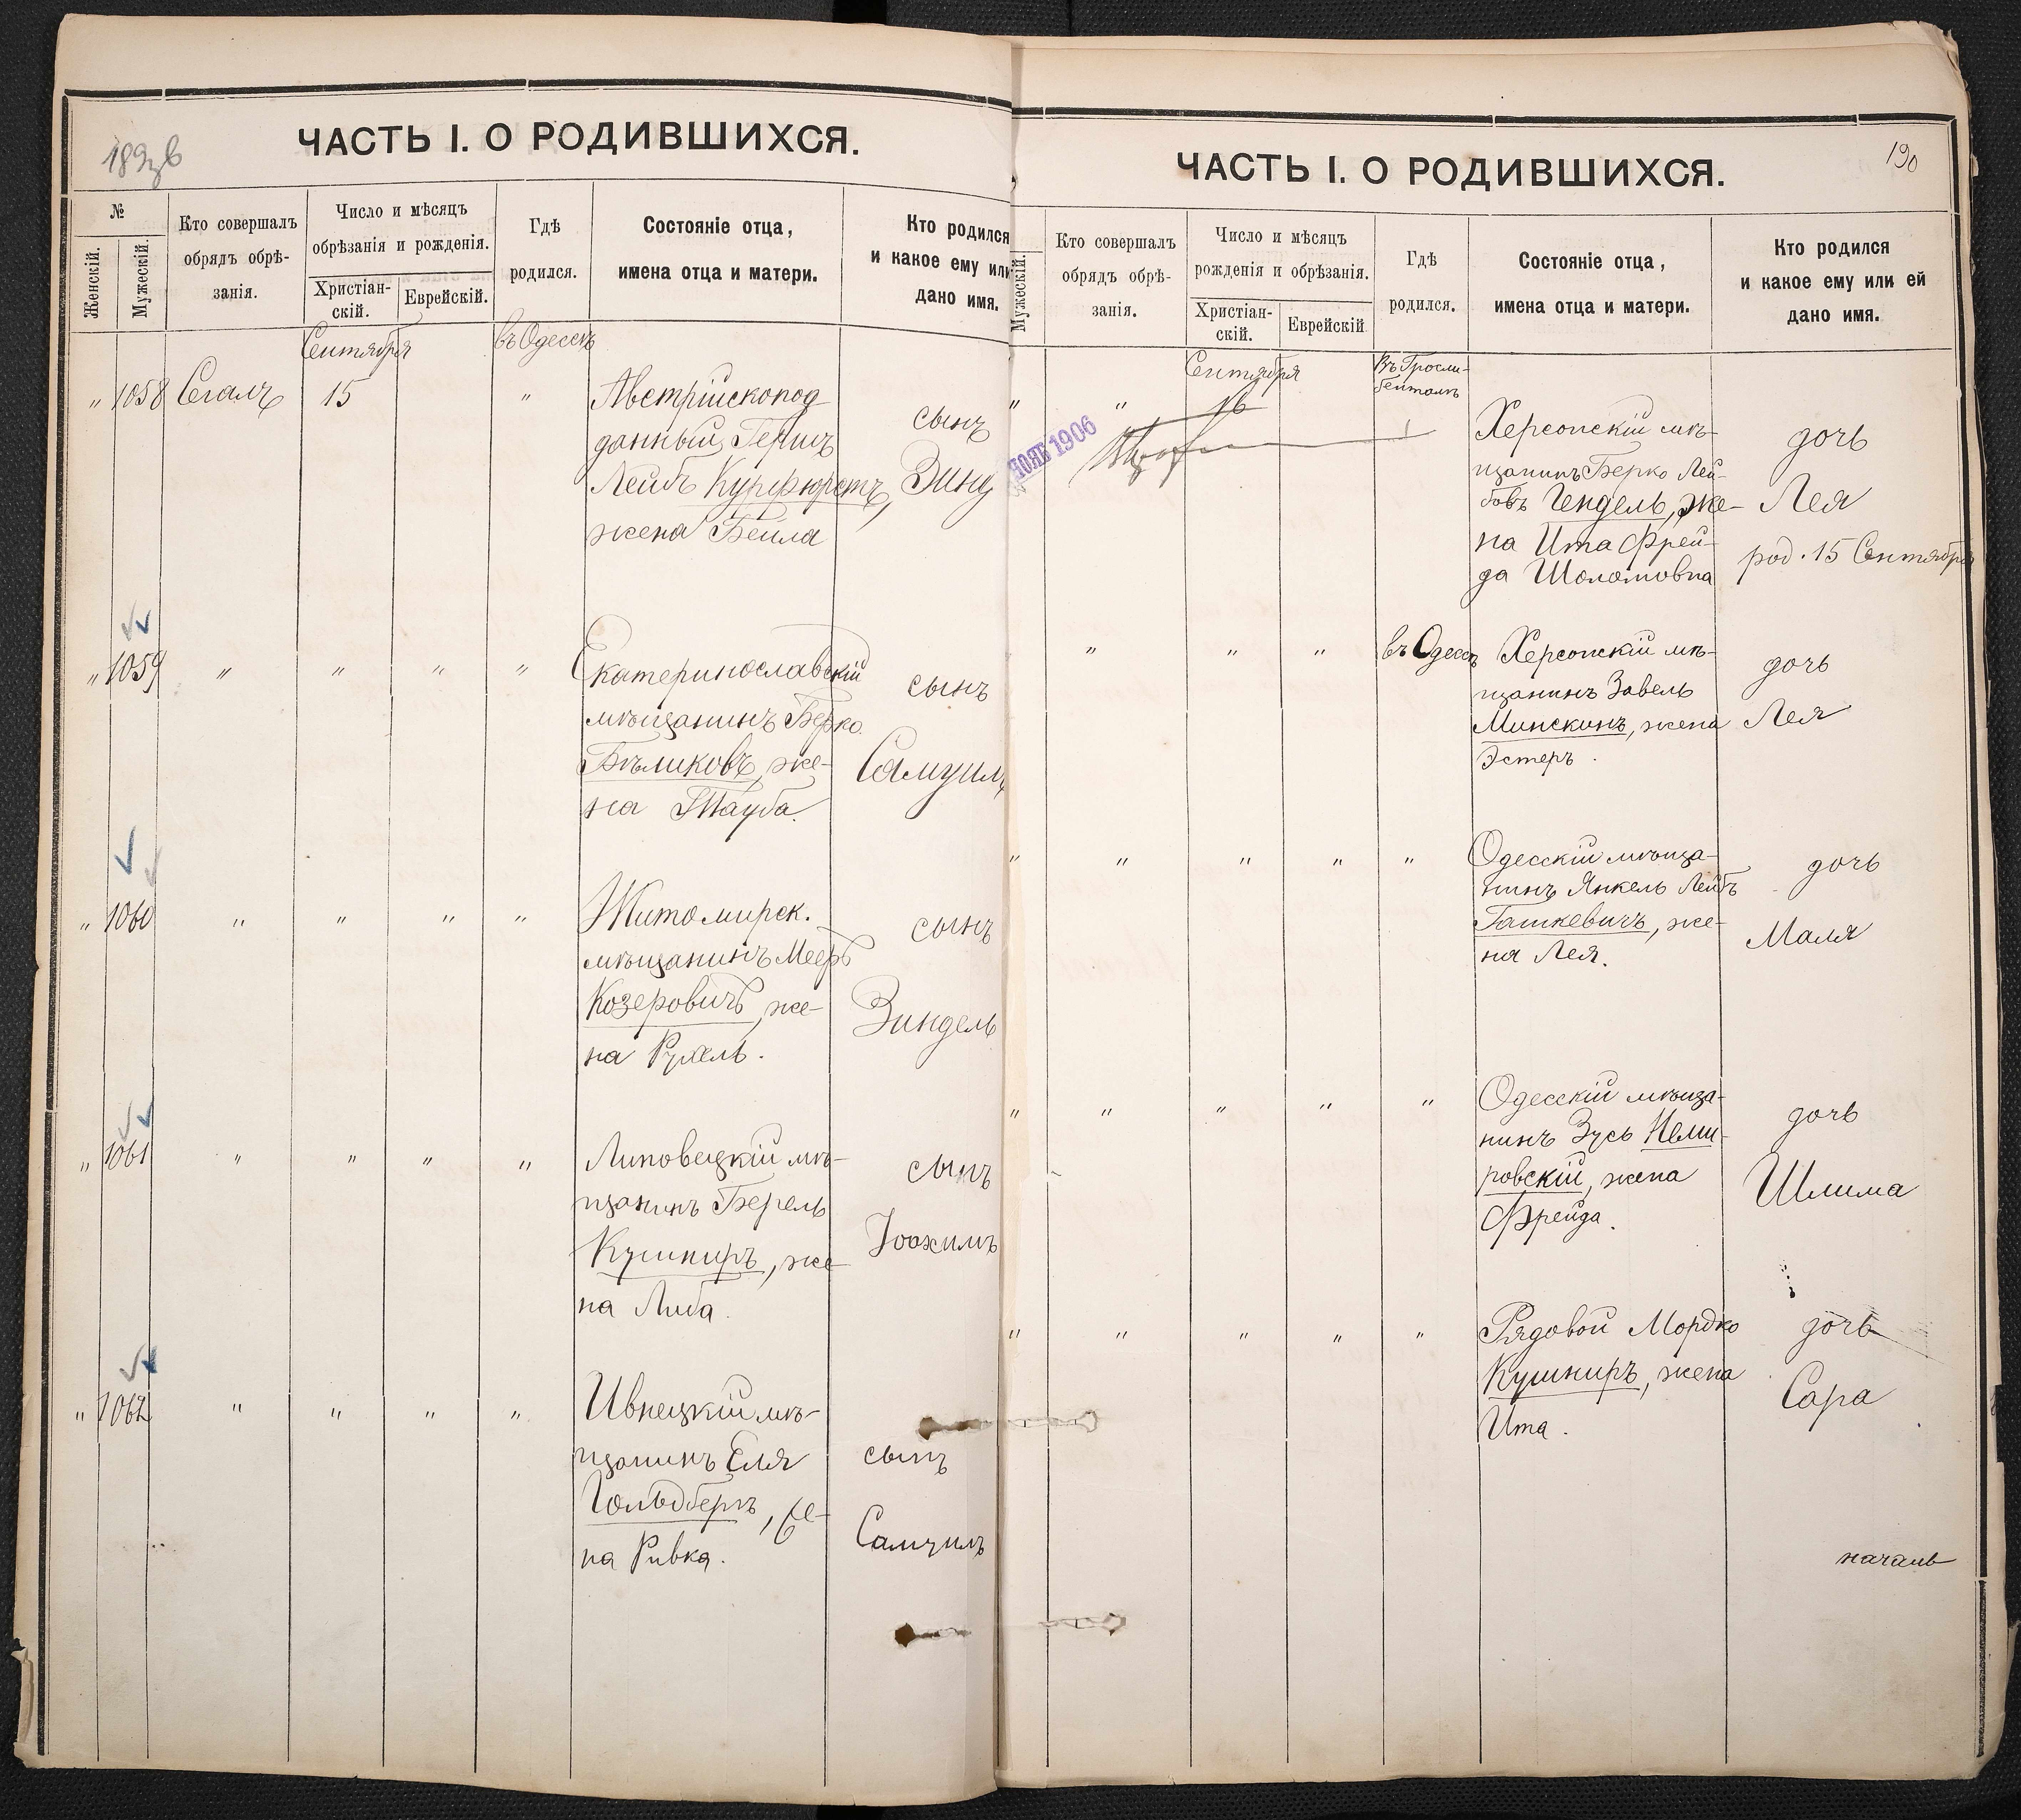 189 об
ЧАСТЬ I. О РОДИВШИХСЯ.
№
Женскій.
Мужескій.
Кто совершалъ
обрядъ обрѣ-
занія.
Число и мѣсяцъ
обрѣзанія и рожденія.
Христіан-
скій.
Еврейскій.
Гдѣ
родился.
Состояніе отца,
имена отца и матери.
Кто родился
и какое ему или
дано имя.
Сентября
въ Одессѣ
" 1058 Сегалъ 15 "
Австрійскопод
данный Гершъ
Лейбъ Курфюрстъ,
жена Бейла
сынъ
Зинд
" 1059 " " " "
Екатеринославскій
мѣщанинъ Берко
Бѣликовъ, же-
на Тауба.
сынъ
Самуилъ
" 1060 " " " "
Житомирск.
мѣщанинъ Мееръ
Козеровичъ, же-
на Рухель.
сынъ
Зиндель
" 1061 " " " "
Липовецкій мѣ-
щанинъ Берель
Кушниръ, же-
на Либа.
сынъ
Іоахимъ
" 1062 " " " "
Ивнецкій мѣ-
щанинъ Еля
Гольдбергъ, же-
на Ривка.
сынъ
Самуилъ
190
ЧАСТЬ I. О РОДИВШИХСЯ.
Мужескій.
Кто совершалъ
обрядъ обрѣ-
занія.
Число и мѣсяцъ
рожденія и обрѣзанія.
Христіан-
скій.
Еврейскій
Гдѣ
родился.
Состояніе отца,
имена отца и матери.
Кто родился
и какое ему или ей
дано имя.
Сентября
Въ Гросли-
бенталѣ
" " 16
НОЯБ 1906
Херсонскій мѣ-
щанинъ Берко Лей-
бовъ Гендель, же-
на Ита Фрей-
да Шоломовна
дочь
Лея
род. 15 Сентября
" " " въ Одессѣ
Херсонскій мѣ-
щанинъ Завель
Минскинъ, жена
Эстеръ.
дочь
Лея
" " " " "
Одесскій мѣща-
нинъ Янкель Лейбъ
Гашкевичъ, же-
на Лея.
дочь
Маля
" " " " "
Одесскій мѣща-
нинъ Зусь Неми-
ровскій, жена
Фрейда.
дочь
Шлима
" " " " "
Рядовой Мордко
Кушниръ, жена
Ита.
дочь
Сара